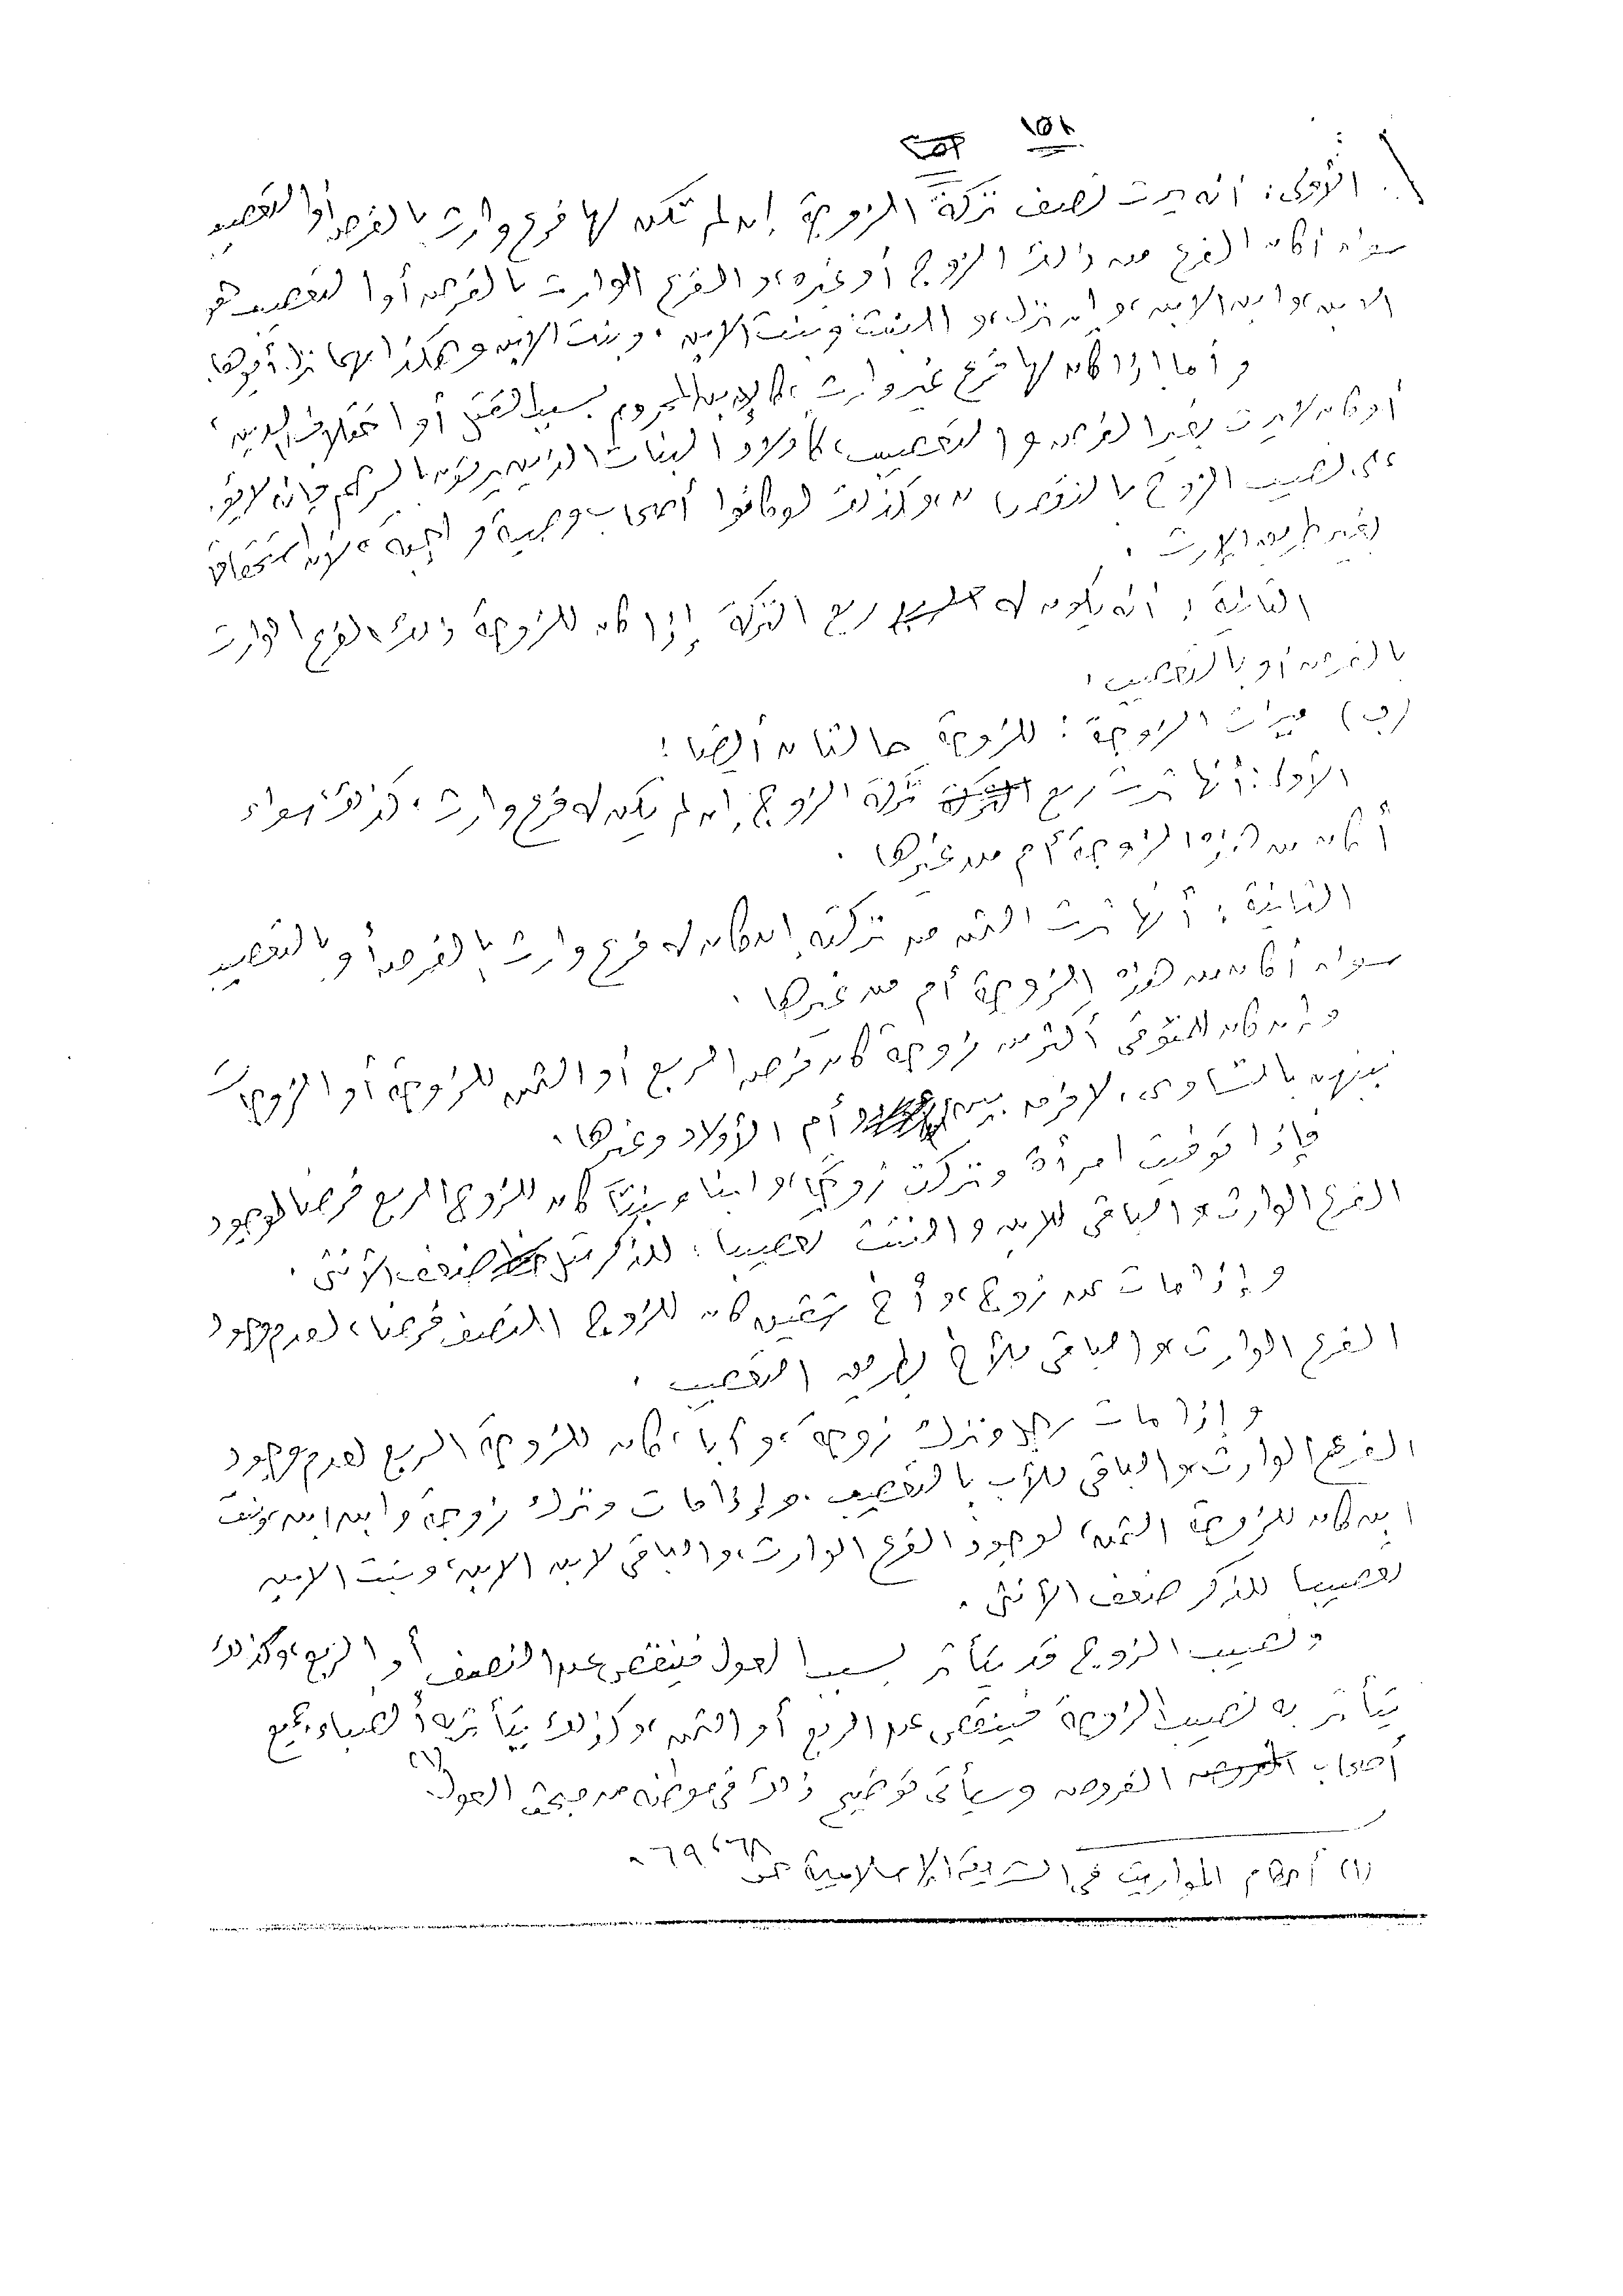 ١٥٨
الأولى: أنه يرث نصف تركة الزوجة إن لم تكن لها فرع وارث بالفرض أو التعصيب
سواء أكان الفرع من ذلك الزوج أو غيره، والفرع الوارث بالفرض أو التعصيب هو
الابن، وابن الابن، وإن نزل، والبنت وبنت الابن، وبنت الابن وهكذا مهما نزل أبوها.
وأما إذا كان لها فرع غير وارث، كالابن المحروم بسبب القتل أو اختلاف الدين،
أو كان لا يرث بغير الفرض والتعصيب، كأولاد البنات الذين يرثون بالرحم فإنه لا يؤثر
على نصيب الزوج بالنقصان، وكذلك لو كانوا أصحاب وصية واجبة، لأن استحقاق
بغير طريق الإرث.
الثانية: أنه يكون له ربع التركة إذا كان للزوجة ذلك الفرع الوارث
بالفرض أو بالتعصيب.
(ب) ميراث الزوجة: للزوجة حالتان أيضا:
الأولى: أنها ترث ربع تركة الزوج إن لم يكن له فرع وارث، كذلك سواء
أكان من هذه الزوجة أم من غيرها.
الثانية: أنها ترث الثمن من تركته إن كان له فرع وارث بالفرض أو بالتعصيب
سواء أكان من هذه الزوجة أم من غيرها.
وإن كان للمتوفى أكثر من زوجة كان فرض الربع أو الثمن للزوجة أو الزوجات
بينهن بالتساوى، لا فرق بين أم الأولاد وغيرها.
فإذا توفيت امرأة وتركت زوجا، وابنا وبنتا كان للزوج الربع فرضا لوجود
الفرع الوارث والباقى للابن والبنت تعصيبا: للذكر ضعف الأنثى.
وإذا ماتت عن زوج، وأخ شقيق كان للزوج النصف فرضا، لعدم وجود
الفرع الوارث، والباقى للأخ بطريق التعصيب.
وإذا مات رجل وترك زوجة، وأبا، كان للزوجة الربع لعدم وجود
الفرع الوارث، والباقى للأب بالتعصيب. وإذا مات وترك زوجة وابن ابن، وبنت
ابن كان للزوجة الثمن، لوجود الفرع الوارث، والباقى لابن الابن، وبنت الابن
تعصيبا للذكر ضعف الأنثى.
ونصيب الزوج قد يتأثر بسبب العول فينقص عن النصف أو الربع، وكذلك
يتأثر به نصيب الزوجة فينقص عن الربع أو الثمن، وكذلك يتأثر به أنصباء جميع
أصحاب الفروض وسيأتى توضيح ذلك فى موضعه من مبحث العول (١)
(١) أحكام المواريث فى الشريعة الإسلامية ص ٦٨، ٦٩.